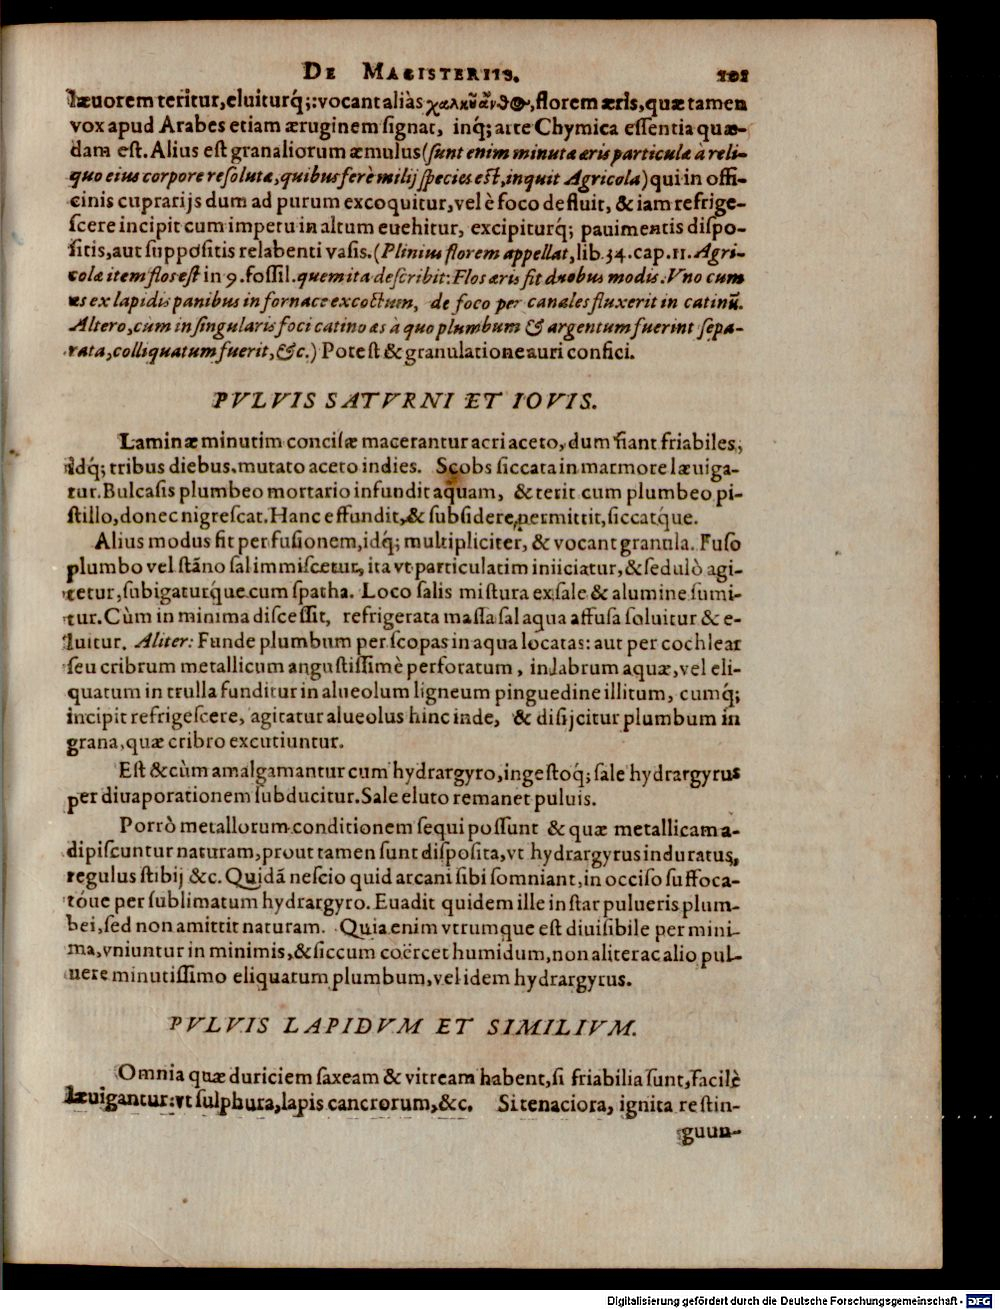 DE MAGISTERIIS. 101
læuorem teritur, eluiturq́;: vocant aliàs χαλκοῦ ἄνθος, florem æris, quæ tamen
vox apud Arabes etiam æruginem ſignat, inq́; arte Chymica eſſentia quæ-
dam eſt. Alius eſt granaliorum æmulus (ſunt enim minutæ æris particulæ à reli-
quo eius corpore reſolutæ, quibus ferè milij ſpecies eſt, inquit Agricola) qui in offi-
cinis cuprarijs dum ad purum excoquitur, vel è foco defluit, & iam refrige-
ſcere incipit cum impetu in altum euehitur, excipiturq́; pauimentis diſpo-
ſitis, aut ſuppoſitis relabenti vaſis. (Plinius florem appellat, lib. 34. cap. 11. Agri-
colæ item flos eſt in 9. foſſil. quem ita deſcribit: Flos æris fit duobus modis. Vno cum
æs ex lapidis panibus in fornace excoctum, de foco per canales fluxerit in catinũ.
Altero, cùm in ſingularis foci catino æs à quo plumbum & argentum fuerint ſepa-
rata, colliquatum fuerit, &c.) Poteſt & granulatione auri confici.
PVLVIS SATVRNI ET IOVIS.
Laminæ minutim conciſæ macerantur acri aceto, dum fiant friabiles,
idq́; tribus diebus, mutato aceto indies. Scobs ſiccata in marmore læuiga-
tur. Bulcaſis plumbeo mortario infundit aquam, & terit cum plumbeo pi-
ſtillo, donec nigreſcat. Hanc effundit, & ſubſidere permittit, ſiccatq́ue.
Alius modus fit per fuſionem, idq́; multipliciter, & vocant granula. Fuſo
plumbo vel ſtãno ſal immiſcetur, ita vt particulatim iniiciatur, & ſedulò agi-
tetur, ſubigaturq́ue cum ſpatha. Loco ſalis miſtura ex ſale & alumine ſumi-
tur. Cùm in minima diſceſſit, refrigerata maſſa ſal aqua affuſa ſoluitur & e-
luitur. Aliter: Funde plumbum per ſcopas in aqua locatas: aut per cochlear
ſeu cribrum metallicum anguſtiſſimè perforatum, in labrum aquæ, vel eli-
quatum in trulla funditur in alueolum ligneum pinguedine illitum, cumq́;
incipit refrigeſcere, agitatur alueolus hinc inde, & diſijcitur plumbum in
grana, quæ cribro excutiuntur.
Eſt & cùm amalgamantur cum hydrargyro, ingeſtoq́; ſale hydrargyrus
per diuaporationem ſubducitur. Sale eluto remanet puluis.
Porrò metallorum conditionem ſequi poſſunt & quæ metallicam a-
dipiſcuntur naturam, prout tamen ſunt diſpoſita, vt hydrargyrus induratus,
regulus ſtibij &c. Quidã neſcio quid arcani ſibi ſomniant, in occiſo ſuffoca-
tóue per ſublimatum hydrargyro. Euadit quidem ille inſtar pulueris plum-
bei, ſed non amittit naturam. Quia enim vtrumque eſt diuiſibile per mini-
ma, vniuntur in minimis, & ſiccum coërcet humidum, non aliter ac alio pul-
uere minutiſſimo eliquatum plumbum, vel idem hydrargyrus.
PVLVIS LAPIDVM ET SIMILIVM.
Omnia quæ duriciem ſaxeam & vitream habent, ſi friabilia ſunt, facilè
læuigantur: vt ſulphura, lapis cancrorum, &c. Si tenaciora, ignita reſtin-
guun-
Digitalisierung gefördert durch die Deutsche Forschungsgemeinschaft - DFG